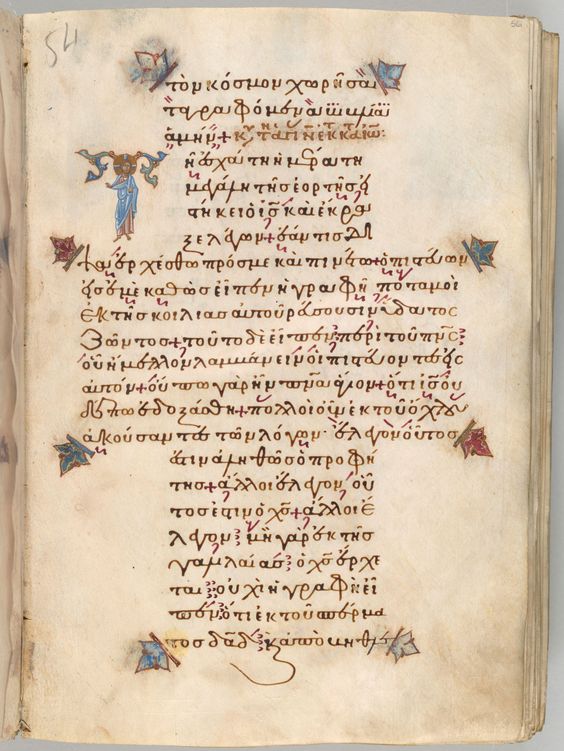 54
56
τὸν κόσμον χωρῆσαι
τὰ γραφόμενα βιβλία
ἀμήν +
ῆ ἐσχάτη ἡμέρα τῆ
μεγάλη τῆς ἑορτῆς εἱ
στήκει ὁ ις καὶ ἔκρα
ζε λέγων + ἐάν τις δι
ψᾶ ἐρχέσθω πρός με καὶ πινέτω + ὁ πιστεύων
εἰς ἐμὲ καθὼς εἶπεν ἡ γραφὴ ποταμοὶ
ἐκ τῆς κοιλίας αὐτοῦ ῥεύσουσιν ὕδατος
ζῶντος + τοῦτο δὲ εἶπεν περὶ τοῦ πνς
οὗ ἤμελλον λαμβάνειν οἱ πιστεύοντες εἰς
αὐτόν + οὔπω γὰρ ἦν πνα ἅγιον + ὅτι ις οὐ
δέπω ἐδοξάσθη + πολλοὶ οὖν ἐκ τοῦ ὄχλου
ἀκούσαντες τῶν λόγων· ἔλεγον οὗτος
ἐστιν ἀληθῶς ὁ προφή
της + ἄλλοι ἔλεγον οὗ
τος ἐστιν ὁ χς + ἄλλοι ἔ
λεγον μὴ γὰρ ἐκ τῆς
γαλιλαίας ὁ χς ἔρχε
ται οὐχὶ ἡ γραφὴ εἶ
πεν ὅτι ἐκ τοῦ σπέρμα
τος δαδ κ ἀπὸ βηθλε